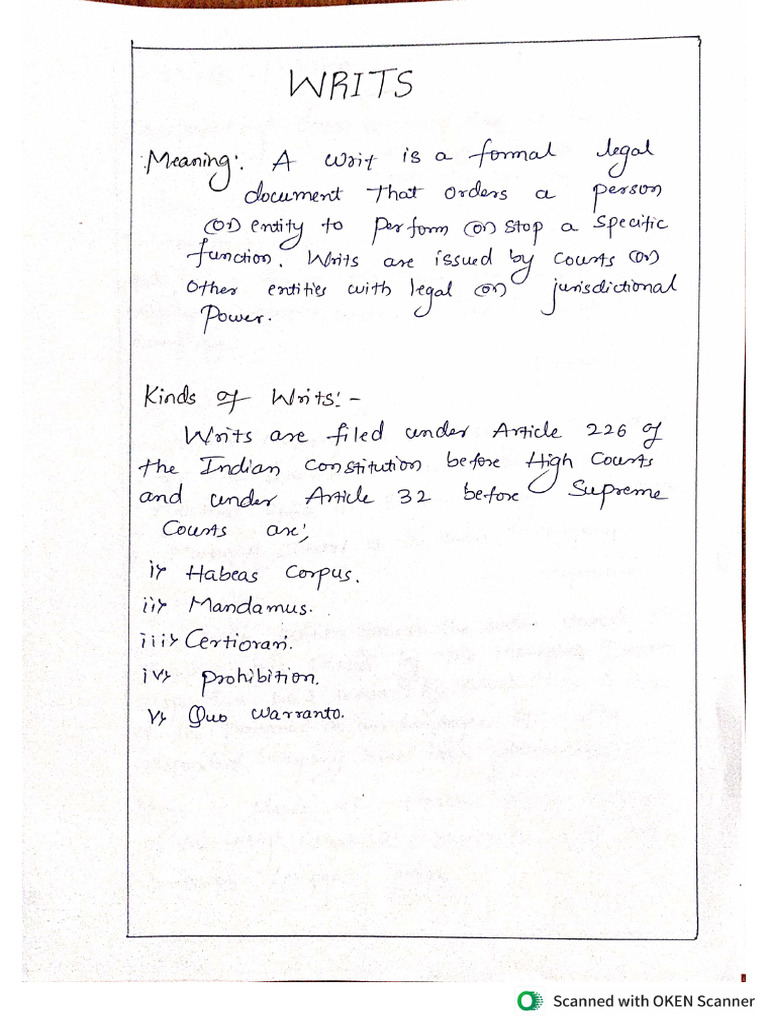 WRITS
Meaning:. A writ is a formal legal
document that orders a person
(or) entity to perform (or) stop a specific
function. Writs are issued by courts (or)
other entities with legal (or) jurisdictional
Power.
Kinds of Writs:-
Writs are filed under Article 226 of
the Indian Constitution before High Courts
and under Article 32 before Supreme
Courts are;
i> Habeas Corpus.
ii> Mandamus.
iii> Certiorari.
iv> Prohibition.
v> Quo warranto.
Scanned with OKEN Scanner